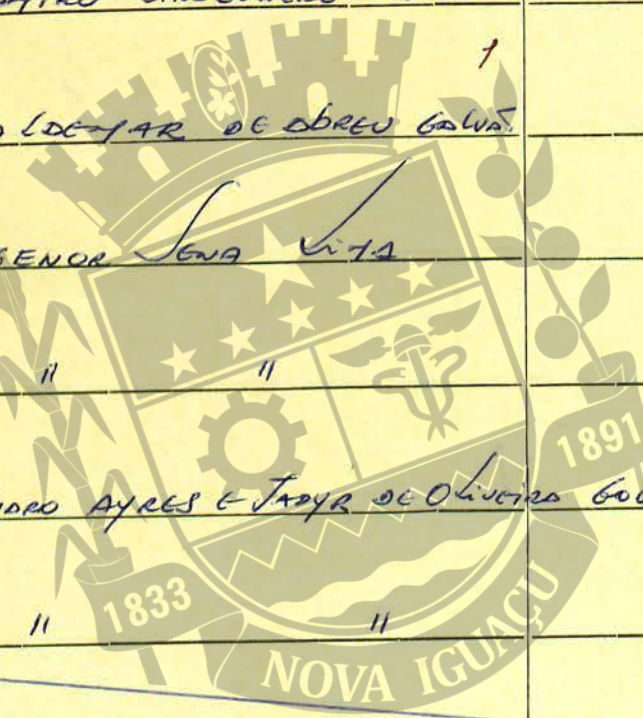 1
LDEMAR DE ABREU GALVÃ
SENOR SENA LIMA
" "
DRO AYRES E JADYR DE OLIVEIRA GO
" "
1833
1891
NOVA IGUAÇU